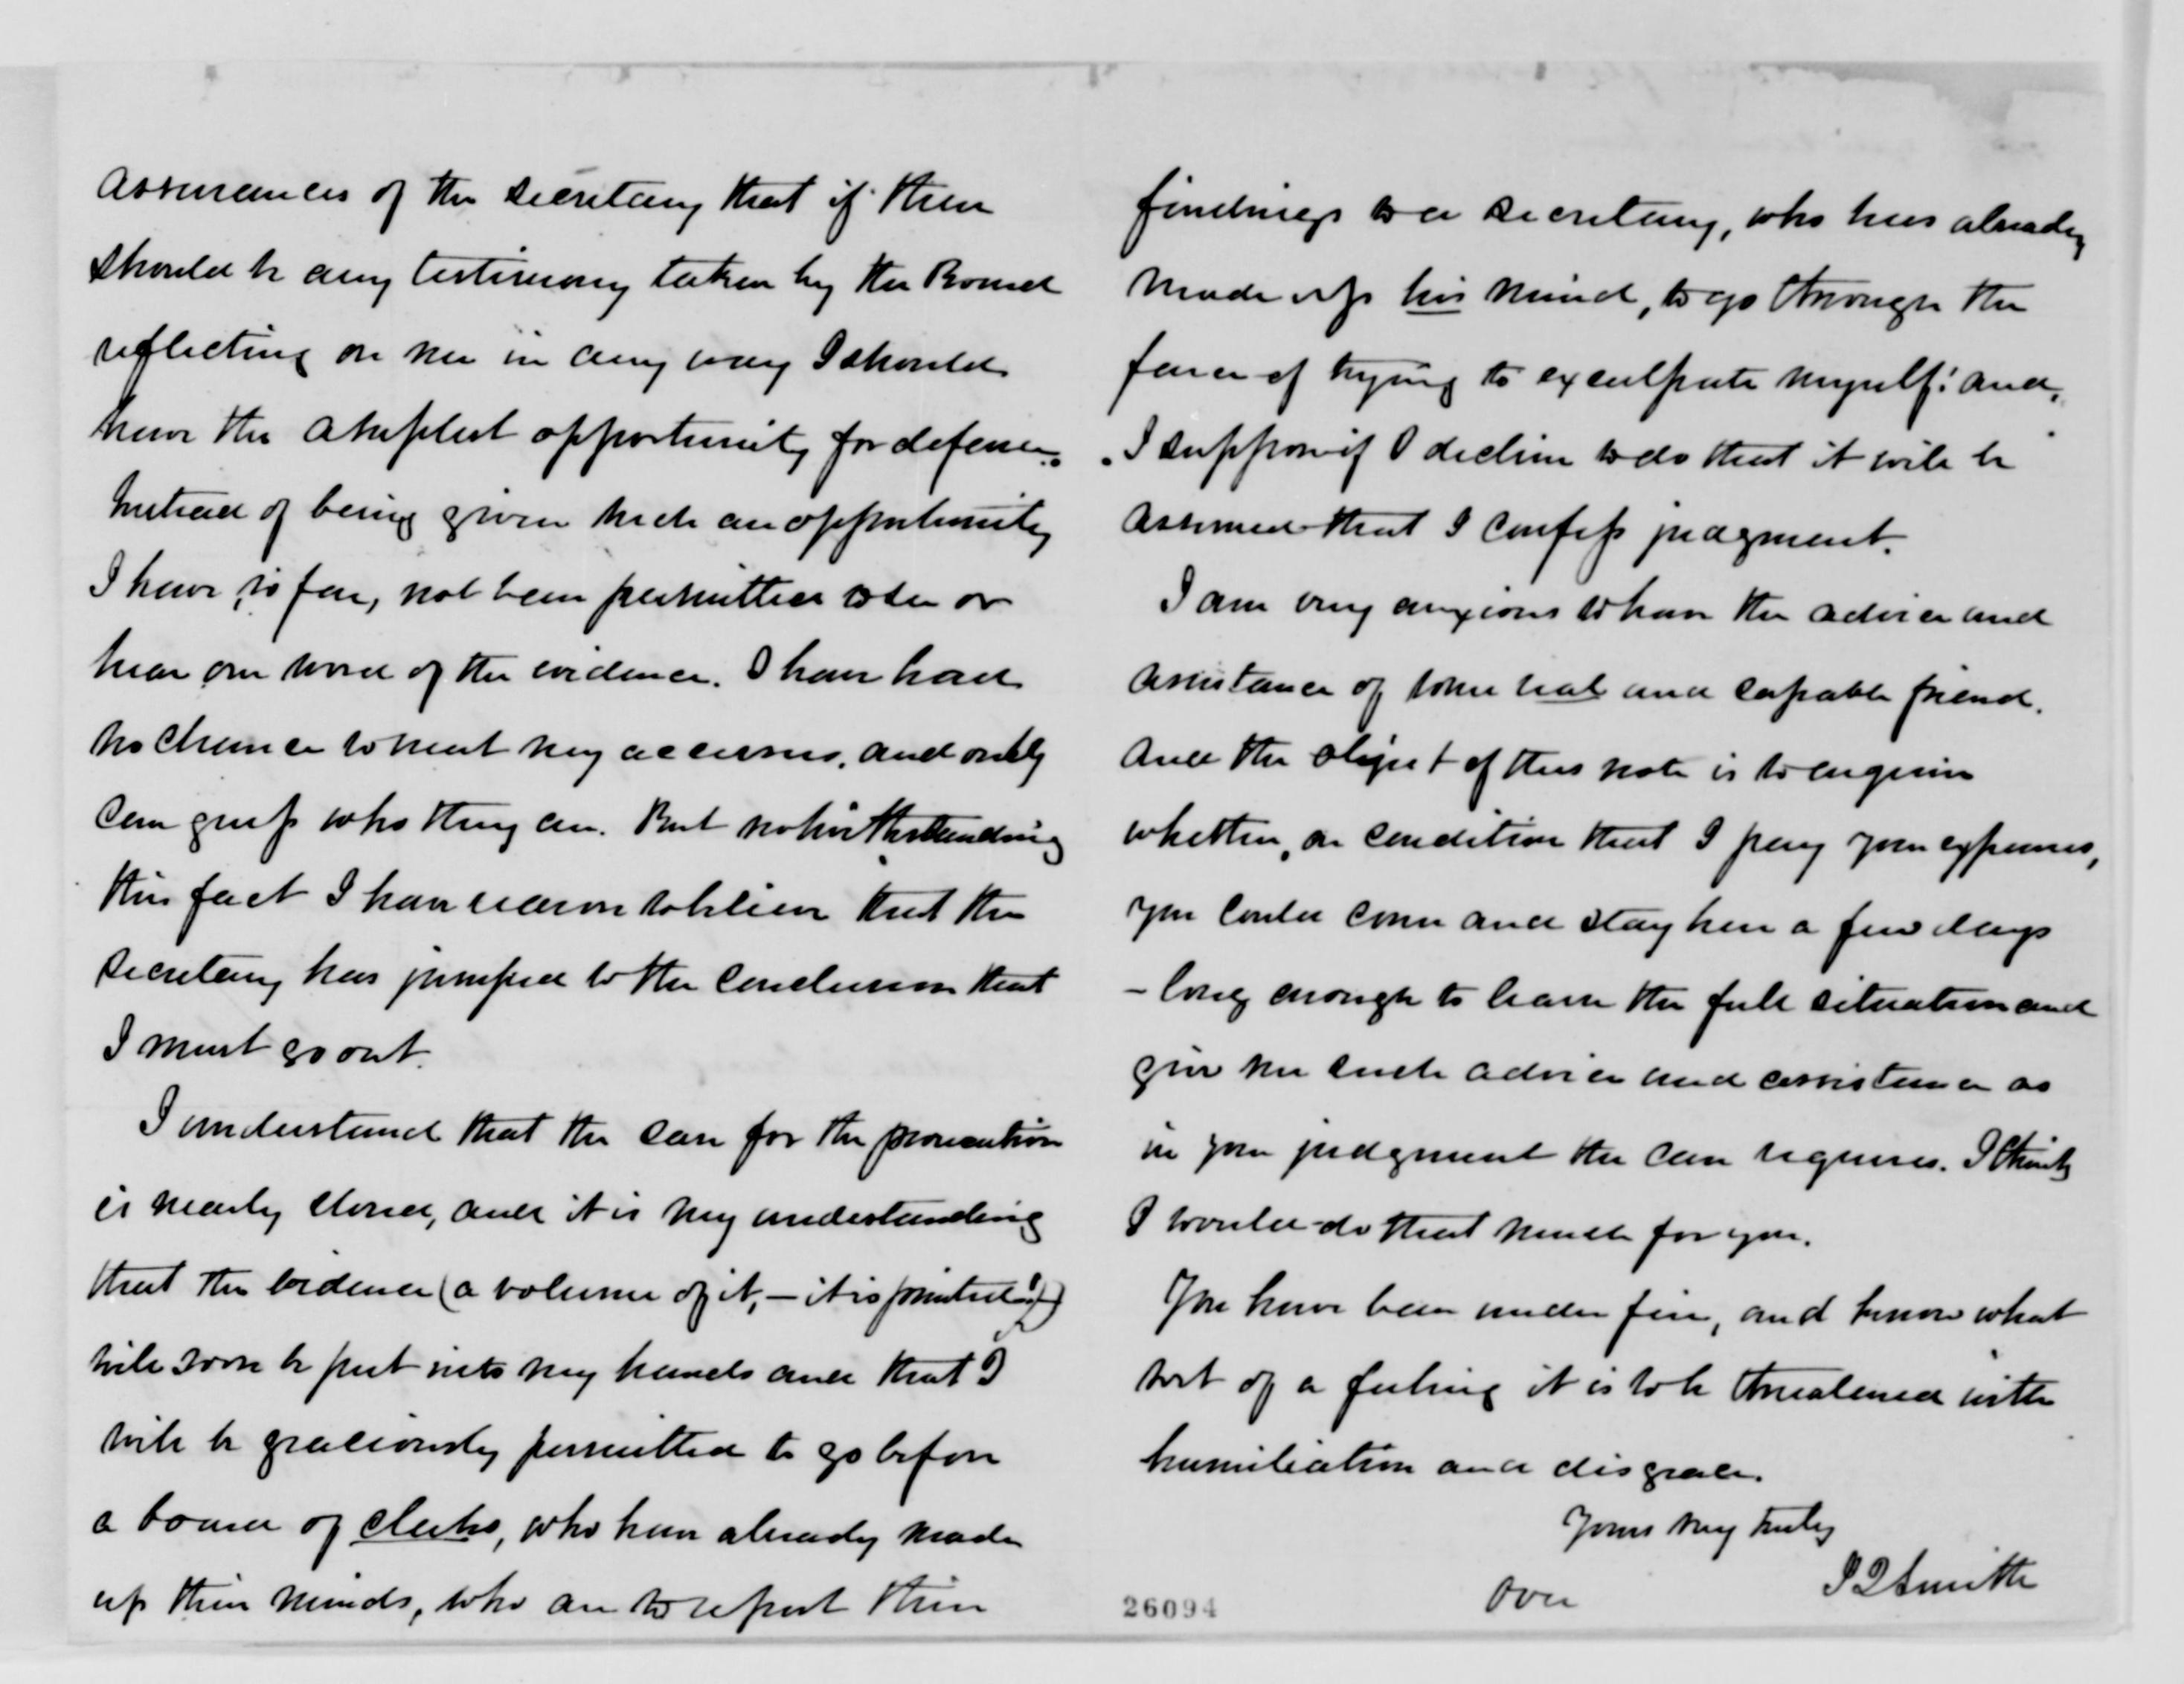 assurances of the Secretary that if there
should be any testimony taken by the Board
reflecting on me in any way I should
have the amplest opportunity for defense.
Instead of being given such an opportunity
I have, so far, not been permitted to see or
hear one word of the evidence. I have had
no chance to meet my accusers, and only
can guess who they are. But notwithstanding
this fact I have reason to believe that the
Secretary has jumped to the conclusion that
I must go out.
I understand that the case for the prosecution
is nearly closed, and it is my understanding
that the evidence (a volume of it, — it is printed!)
will soon be put into my hands and that I
will be graciously permitted to go before
a board of clerks, who have already made
up their minds, who are to report their
findings to a Secretary, who has already
made up his mind, to go through the
farce of trying to exculpate myself: and,
I suppose if I decline to do that it will be
assumed that I confess judgment.
I am very anxious to have the advice and
assistance of some real and capable friend.
And the object of this note is to enquire
whether, on condition that I pay your expenses,
you could come and stay here a few days
- long enough to learn the full situation and
give me such advice and assistance as
in your judgment the case requires. I think
I would do that much for you.
You have been under fire, and know what
sort of a feeling it is to be threatened with
humiliation and disgrace.
Yours very truly
Smith
over
26094